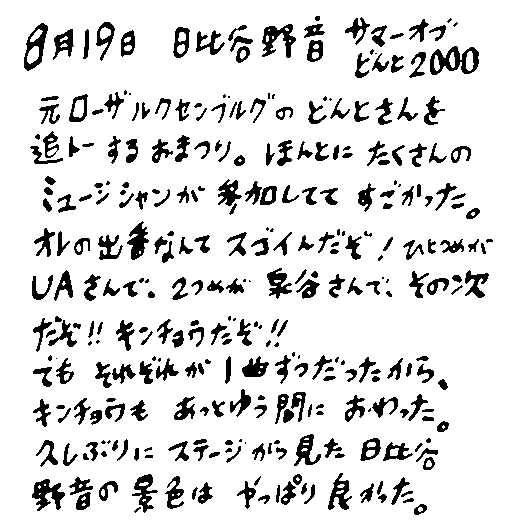 8月19日 日比谷野音 サマーオブ
どんと2000
元ローザルクセンブルグの どんとさんを
追トーする おまつり。ほんとに たくさんの
ミュージシャンが 参加してて すごかった。
オレの出番なんて スゴイんだぞ! ひとつめが
UAさんで、2つめが 泉谷さんで、その次
だぞ!! キンチョウだぞ!!
でも それぞれが 1曲ずつだったから、
キンチョウも あっとゆう間に おわった。
久しぶりに ステージから見た 日比谷
野音の 景色は やっぱり 良かった。